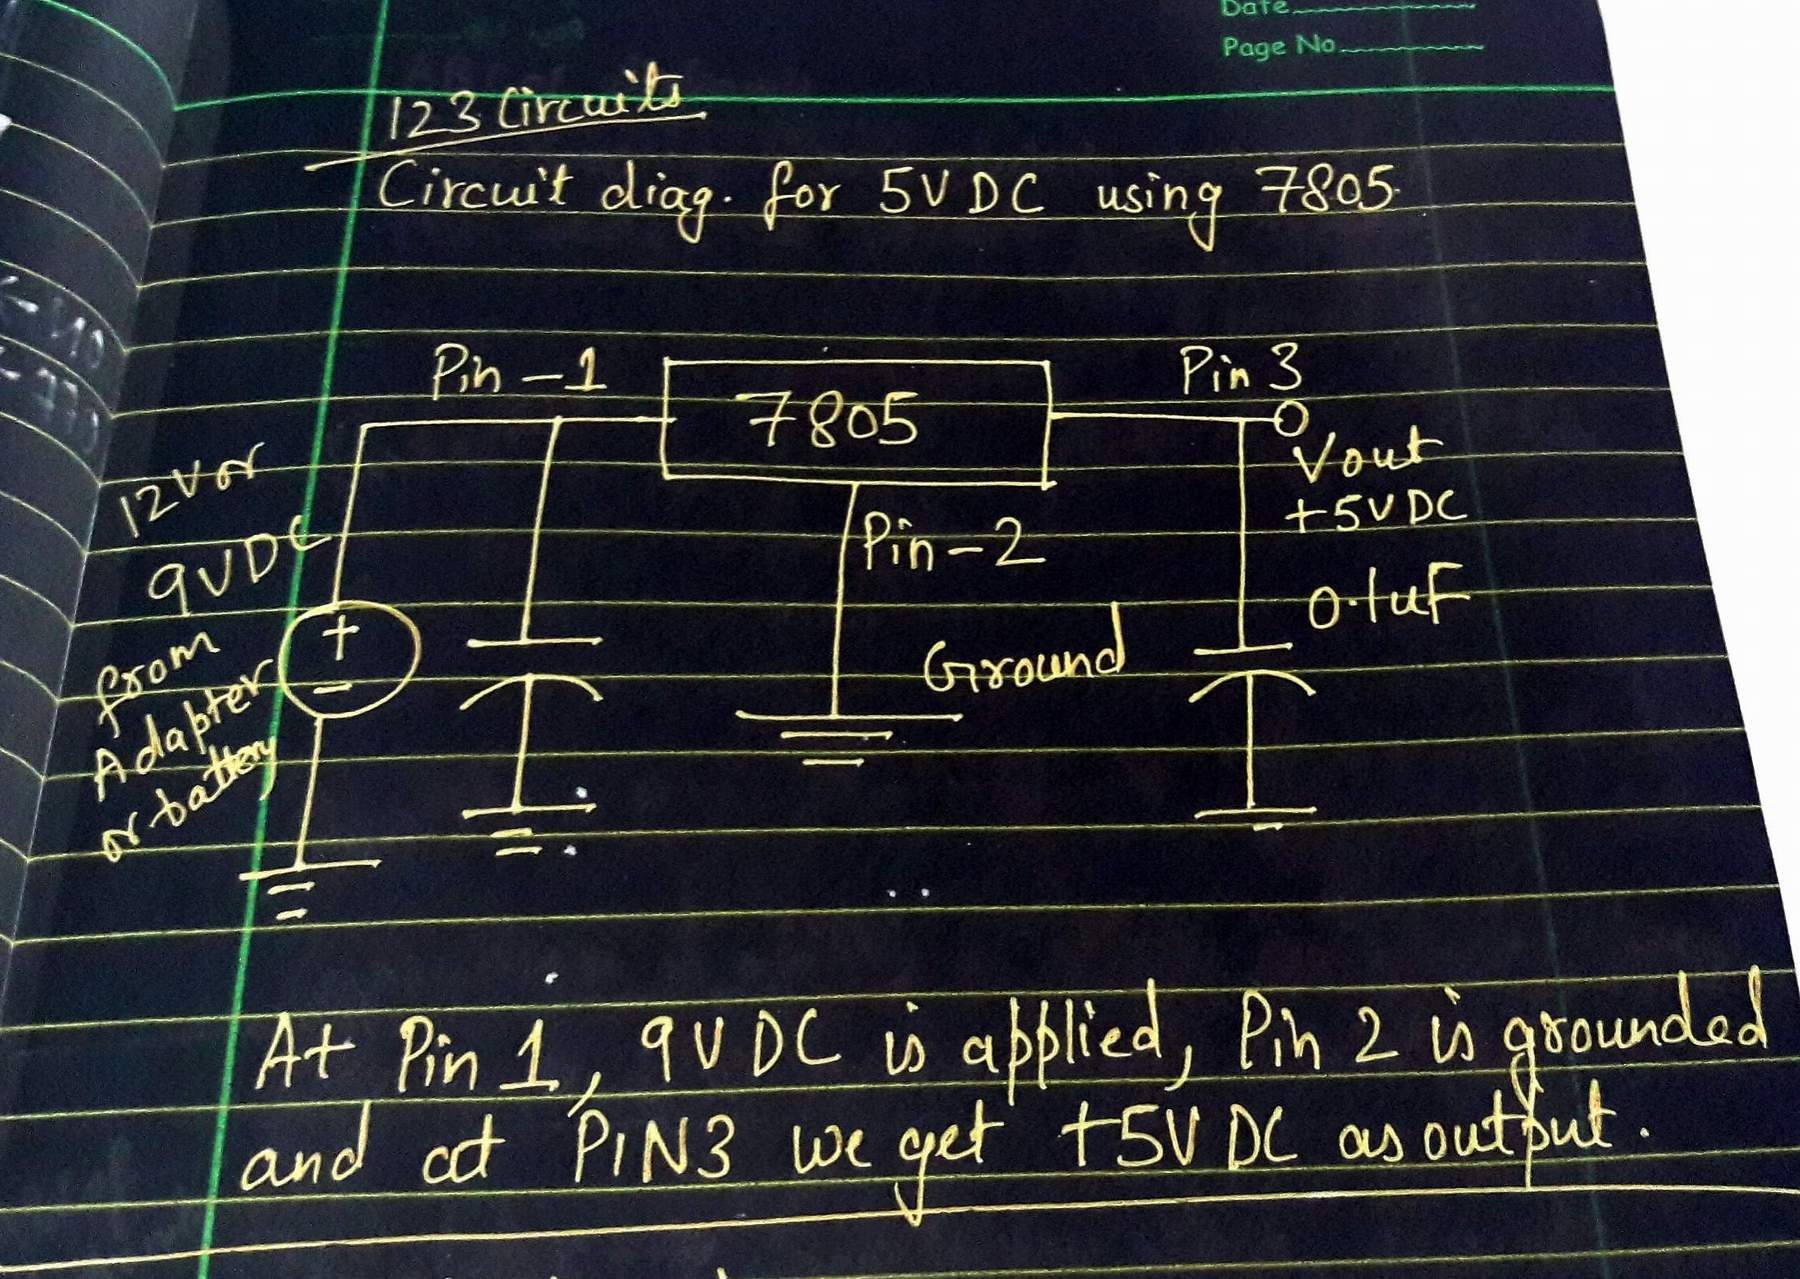 Date
Page No.
123 Circuits
Circuit diag. for 5V DC using 7805
Pin-1
7805
Pin 3
12V or
9VDC
from
Adapter
or battery
+
-
Pin-2
Ground
Vout
+5V DC
0.1uF
At Pin 1, 9V DC is applied, Pin 2 is grounded
and at PIN3 we get +5V DC as output.